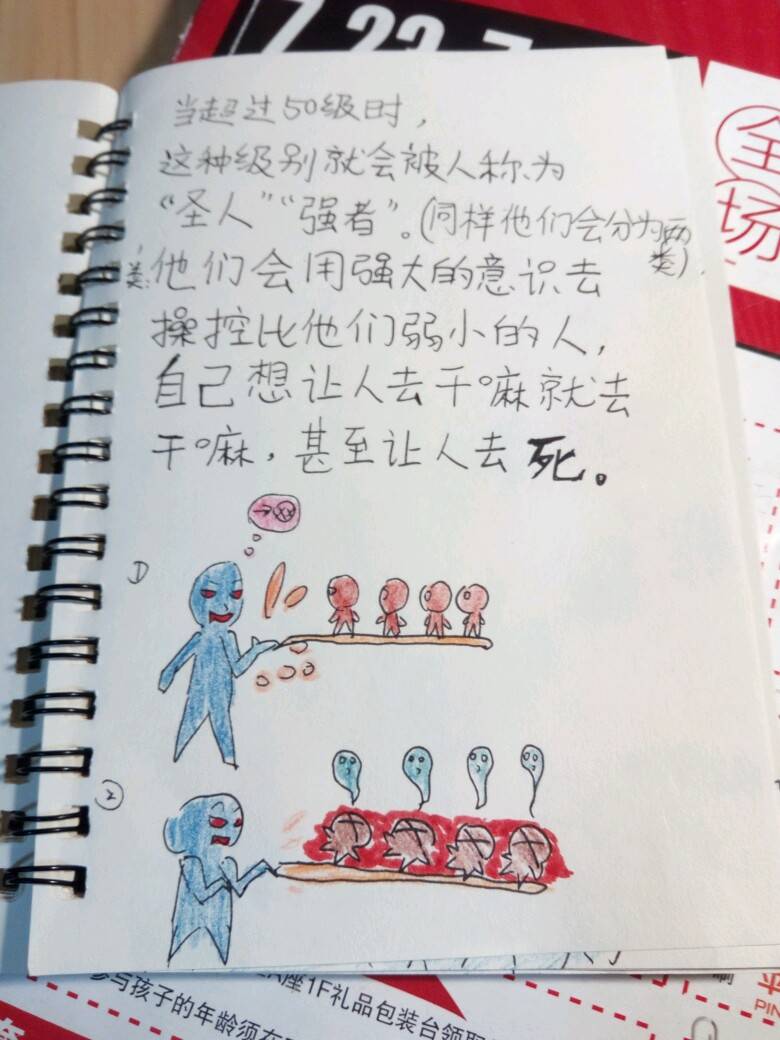 7.23-7
全
场
当超过50级时，
这种级别就会被人称为
“圣人”“强者”。(同样他们会分为两类)
类:他们会用强大的意识去
操控比他们弱小的人，
自己想让人去干嘛就去
干嘛，甚至让人去死。
①
②
座1F礼品包装台领取
参与孩子的年龄须在